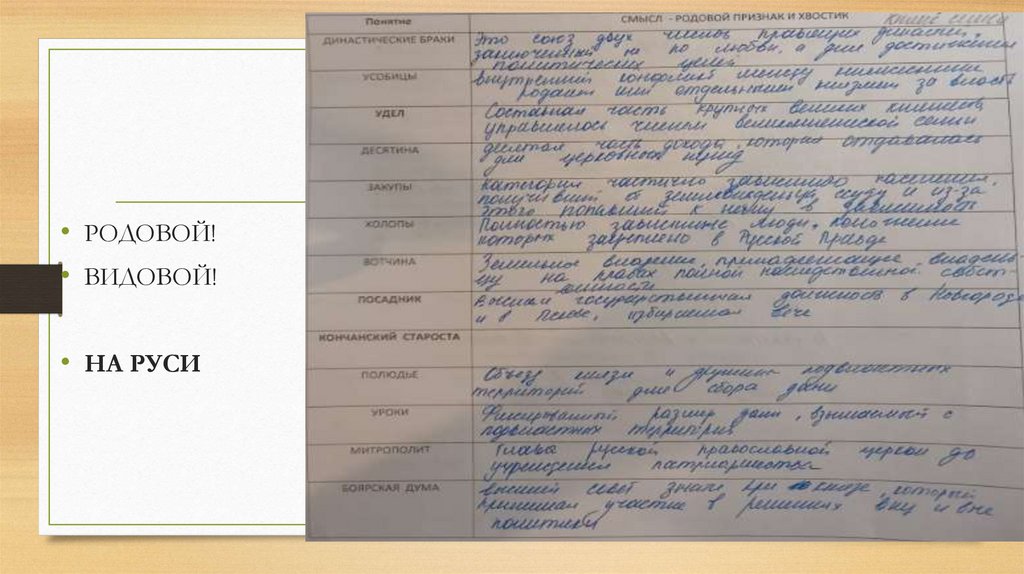 РОДОВОЙ!
ВИДОВОЙ!
НА РУСИ
Понятие
СМЫСЛ - РОДОВОЙ ПРИЗНАК И ХВОСТИК
ДИНАСТИЧЕСКИЕ БРАКИ
Это союз двух членов правящих династий,
заключенный не по любви, а для достижения
политических целей
УСОБИЦЫ
внутренний конфликт между княжескими
родами или отдельными князьями за власть
УДЕЛ
Составная часть крупных великих княжеств
управлялось членом великокняжеской семьи
ДЕСЯТИНА
десятая часть дохода, которая отдавалась
для церковных нужд
ЗАКУПЫ
Категория частично зависимого населения,
получивший от землевладельца ссуду и из-за
этого попавший к нему в зависимость
ХОЛОПЫ
Полностью зависимые люди, положение
которых закреплено в Русской Правде
ВОТЧИНА
Земельное владение, принадлежащее владель-
цу на правах полной наследственной собст-
венности
ПОСАДНИК
Высшая государственная должность в Новгороде
и в Пскове, избираемая вече
КОНЧАНСКИЙ СТАРОСТА
ПОЛЮДЬЕ
Объезд князя и дружины подвластных
территорий для сбора дани
УРОКИ
Фиксированный размер дани, взимаемый с
подвластных территорий
МИТРОПОЛИТ
Глава Русской православной церкви до
учреждения патриаршества
БОЯРСКАЯ ДУМА
высший совет знати при князе, который
принимал участие в решениях внц и вне
политики